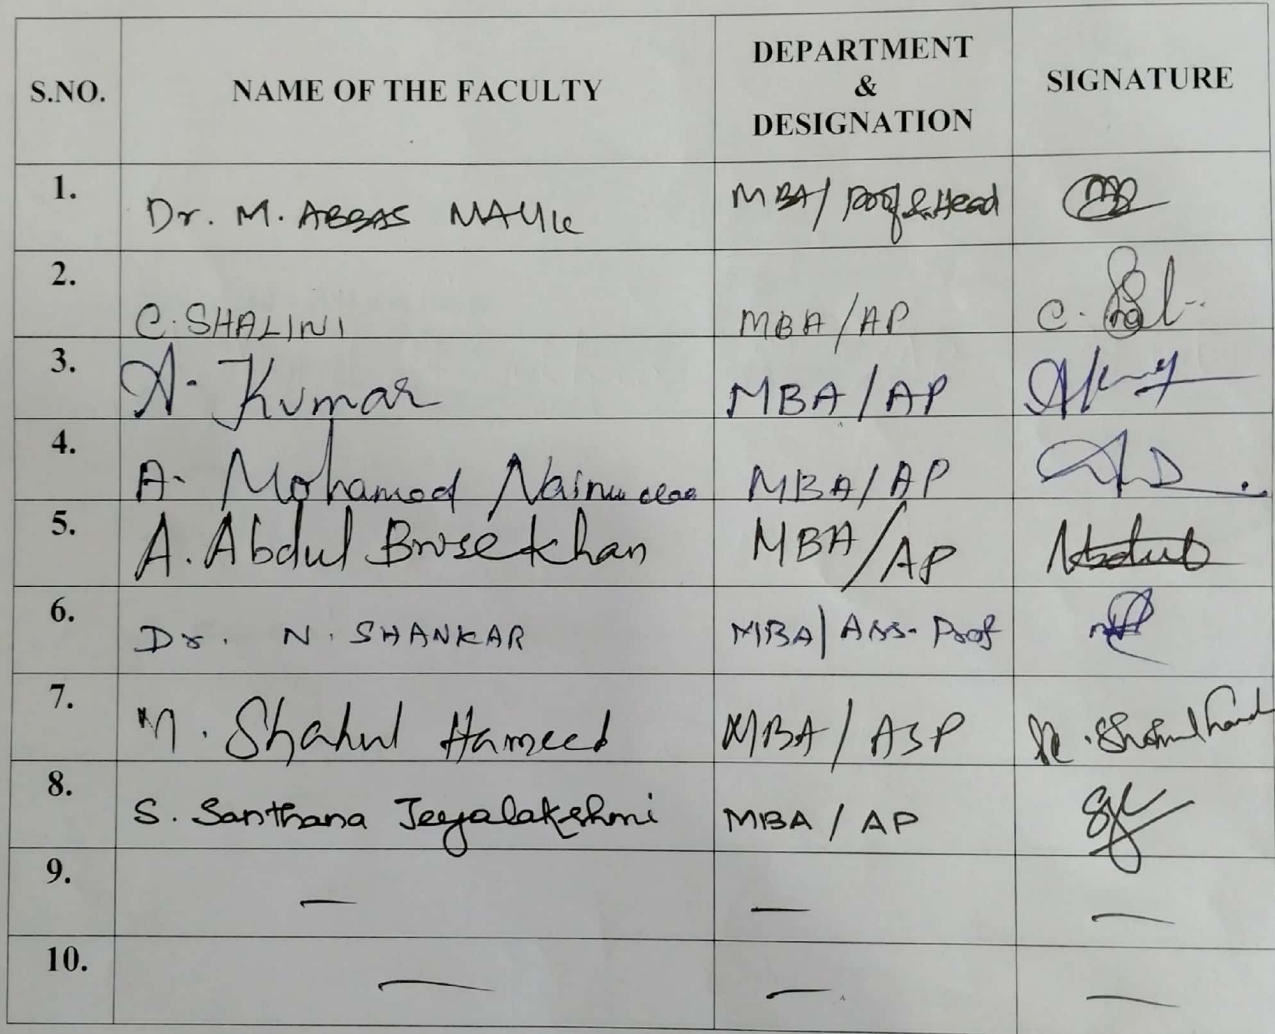 S.NO. NAME OF THE FACULTY DEPARTMENT & DESIGNATION SIGNATURE
1. Dr. M. ABBAS MALIK MBA/ Prof & Head
2. C. SHALINI MBA/AP C.
3. A. Kumar MBA/AP
4. A. Mohamed MBA/AP
5. A. Abdul Browsekhan MBA/AP
6. Dr. N. SHANKAR MBA/ Ass. Prof
7. M. Shahul Hameed MBA/ ASP
8. S. Santhana Jeyalakshmi MBA / AP
9. — — —
10. — — —